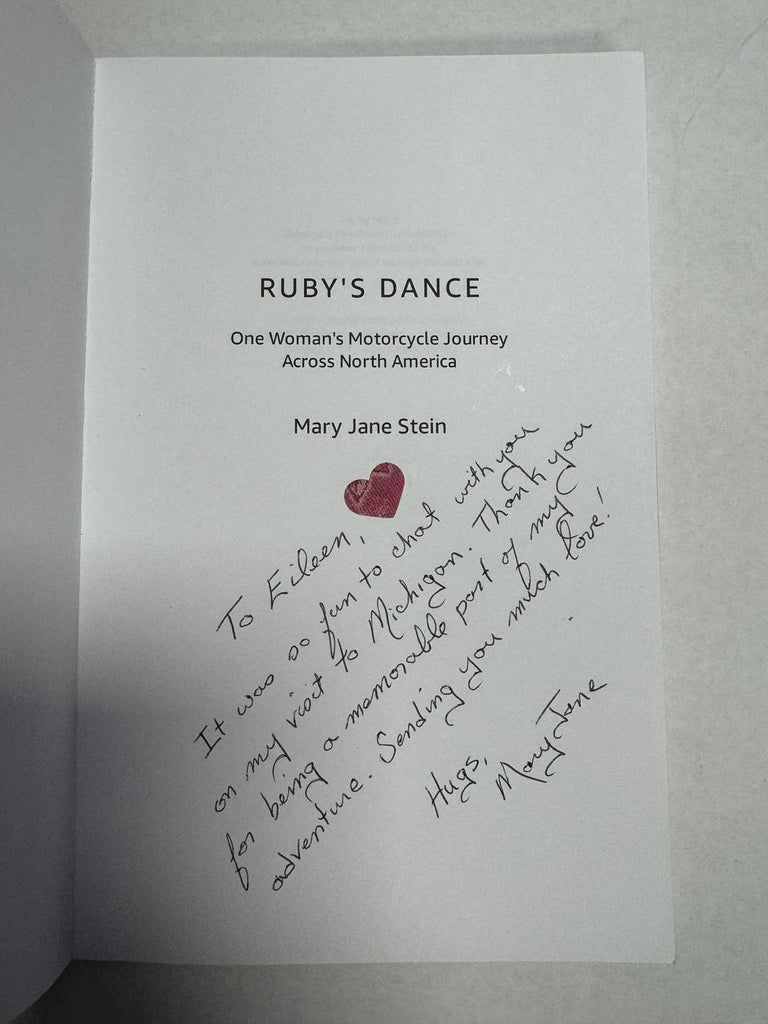 RUBY'S DANCE
One Woman's Motorcycle Journey
Across North America
Mary Jane Stein
To Eileen,
It was so fun to chat with you
on my visit to Michigan. Thank you
for being a memorable part of my
adventure. Sending you much love!
Hugs,
Mary Jane